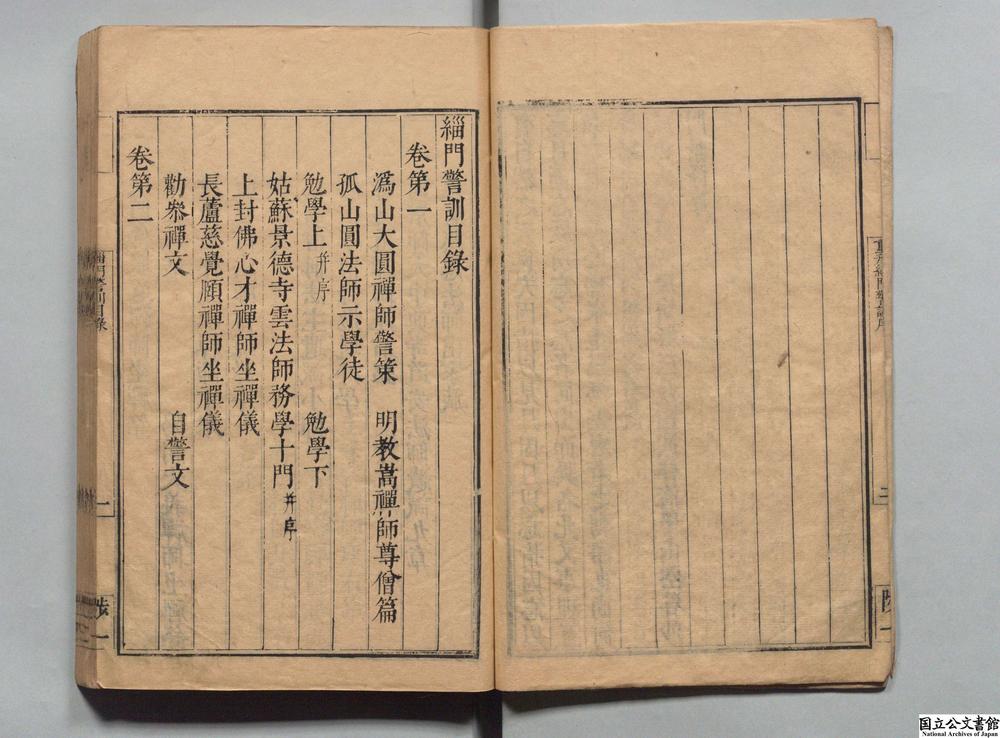 緇門警訓目錄
卷第一
溈山大圓禪師警策　明教嵩禪師尊僧篇
孤山圓法師示學徒
勉學上并序　勉學下
姑蘇景德寺雲法師務學十門并序
上封佛心才禪師坐禪儀
長蘆慈覺賾禪師坐禪儀
勸叅禪文　自警文
卷第二
緇門警訓目錄
一
國立公文書館
National Archives of Japan